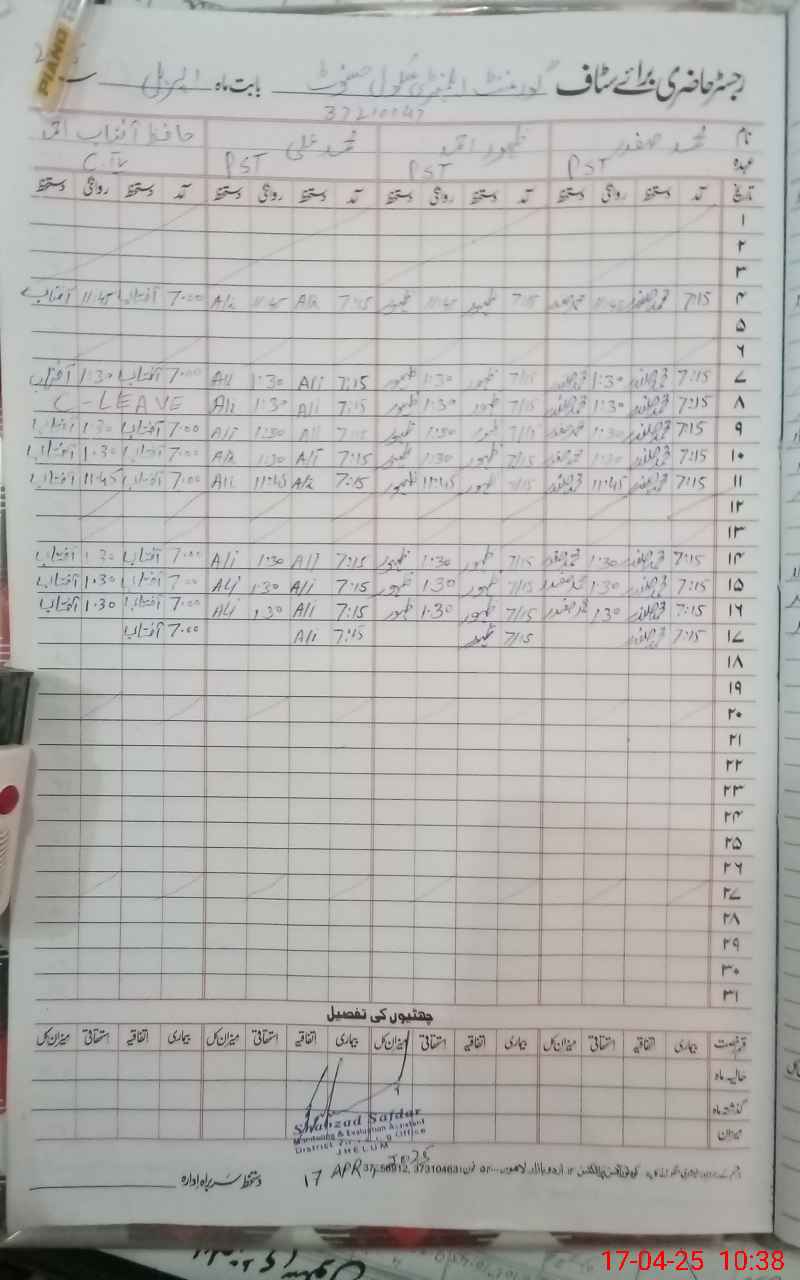 رجسٹر حاضری برائے سٹاف گورنمنٹ ایلیمنٹری سکول بابت ماہ اپریل
37210047
نام محمد صفدر ظہور احمد محمد علی حافظ آفتاب احمد
عہدہ PST PST PST
تاریخ آمد دستخط روانگی دستخط آمد دستخط روانگی دستخط آمد دستخط روانگی دستخط آمد دستخط روانگی دستخط
۱
۲
۳
۴ 7:15 محمد صفدر 11:45 محمد صفدر 7:15 ظہور 11:45 ظہور 7:15 Ali 11:45 Ali 7:00 آفتاب 11:45 آفتاب
۵
۶
۷ 7:15 محمد صفدر 1:30 محمد صفدر 7:15 ظہور 1:30 ظہور 7:15 Ali 1:30 Ali 7:00 آفتاب 1:30 آفتاب
۸ 7:15 محمد صفدر 1:30 محمد صفدر 7:15 ظہور 1:30 ظہور 7:15 Ali 1:30 Ali C-LEAVE
۹ 7:15 محمد صفدر 1:30 محمد صفدر 7:15 ظہور 1:30 ظہور 7:15 Ali 1:30 Ali 7:00 آفتاب 1:30 آفتاب
۱۰ 7:15 محمد صفدر 1:30 محمد صفدر 7:15 ظہور 1:30 ظہور 7:15 Ali 1:30 Ali 7:00 آفتاب 1:30 آفتاب
۱۱ 7:15 محمد صفدر 11:45 محمد صفدر 7:15 ظہور 11:45 ظہور 7:15 Ali 11:45 Ali 7:00 آفتاب 11:45 آفتاب
۱۲
۱۳
۱۴ 7:15 محمد صفدر 1:30 محمد صفدر 7:15 ظہور 1:30 ظہور 7:15 Ali 1:30 Ali 7:00 آفتاب 1:30 آفتاب
۱۵ 7:15 محمد صفدر 1:30 محمد صفدر 7:15 ظہور 1:30 ظہور 7:15 Ali 1:30 Ali 7:00 آفتاب 1:30 آفتاب
۱۶ 7:15 محمد صفدر 1:30 محمد صفدر 7:15 ظہور 1:30 ظہور 7:15 Ali 1:30 Ali 7:00 آفتاب 1:30 آفتاب
۱۷ 7:15 محمد صفدر 7:15 ظہور 7:15 Ali 7:00 آفتاب
۱۸
۱۹
۲۰
۲۱
۲۲
۲۳
۲۴
۲۵
۲۶
۲۷
۲۸
۲۹
۳۰
۳۱
چھٹیوں کی تفصیل
قسم رخصت بیماری اتفاقیہ استحقاقی میزان کل بیماری اتفاقیہ استحقاقی میزان کل بیماری اتفاقیہ استحقاقی میزان کل بیماری اتفاقیہ استحقاقی میزان کل
حالیہ ماہ
گذشتہ ماہ
میزان
Shahzad Safdar
Monitoring & Evaluation Assistant
District Office
JHELUM
17 APR 2025
دستخط سربراہ ادارہ
PIANO
17-04-25 10:38